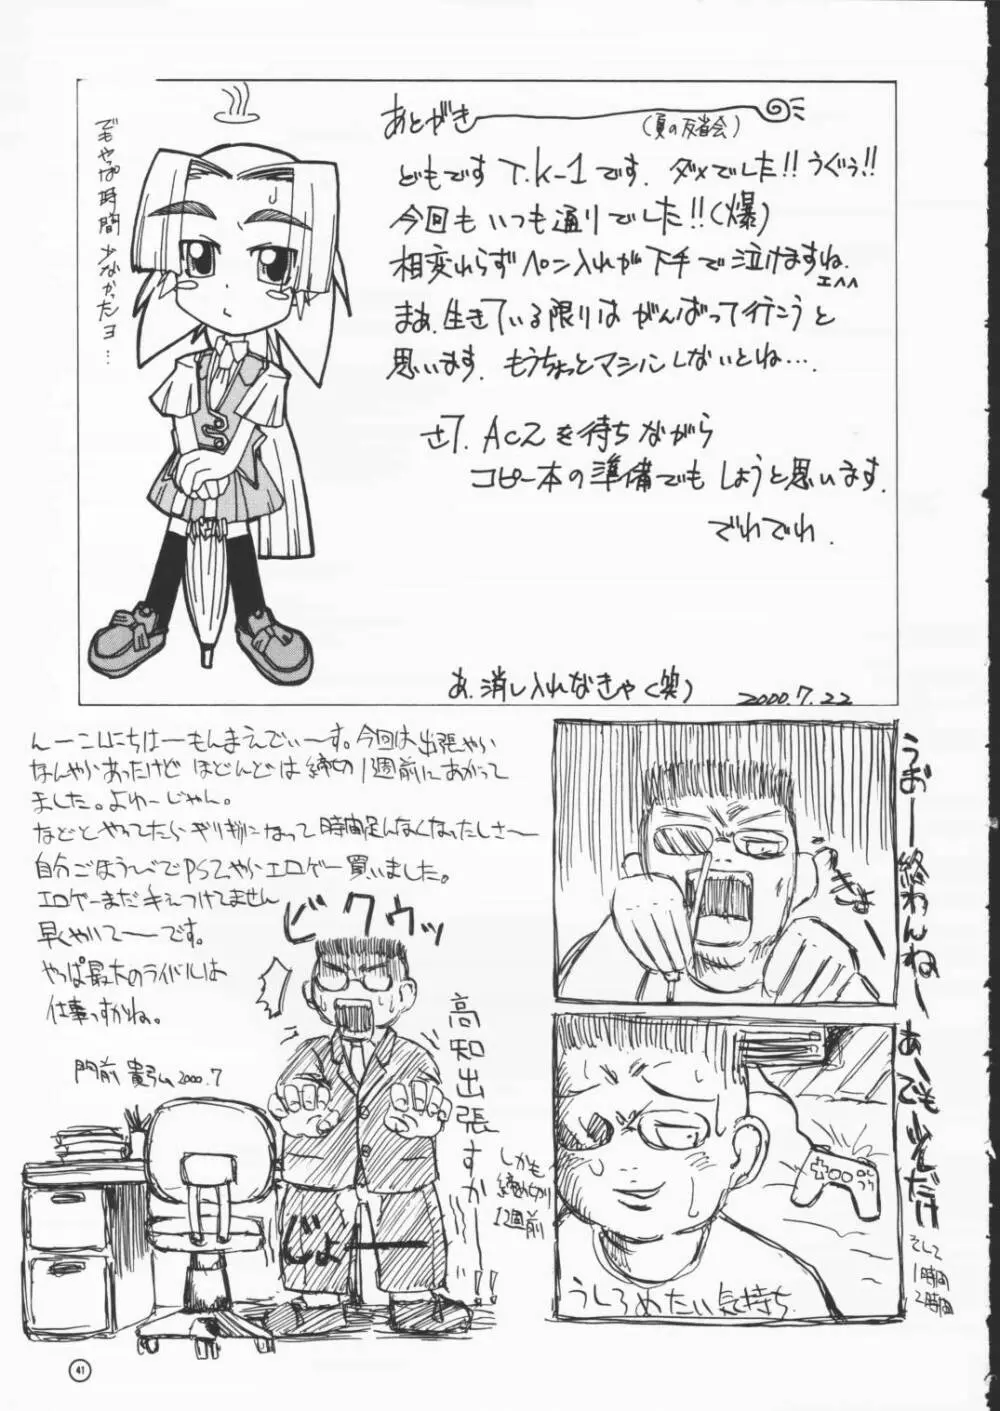 あとがき
(夏の反省会)
どもです T.K-1です. ダメでした!! うぐぅ!!
今回も いつも通りでした!!(爆)
相変わらず ペン入れが下手で泣けますね.
まぁ.生きている限りは がんばって行こうと
思います. もうちょっとマシにしないとね…
さて. AC2を待ちながら
コピー本の準備でも しようと思います.
でわでわ.
でもやっぱ時間少なかったヨ…
あ.消し入れなきゃ(笑)
2000.7.22
んーこんにちはーもんまえでぃーす。今回は出張やら
なんやらあったけど ほとんどは 締切1週前にあがって
ました。よゆーじゃん。
などとやってたらギリギリになって時間足んなくなったしさ〜
自分ごほうびでPS2やらエロゲー買いました。
エロゲーまだ手えつけてません
早くやいてーです。
やっぱ最大のライバルは
仕事っすかね。
門前 貴弘 2000.7
ビクウッ
高知出張すか!!
しかも
締め切り
1週前
じょーー
うおー終わんねー
あーでも少しだけ
そして
1時間
2時間
うしろめたい気持ち
41